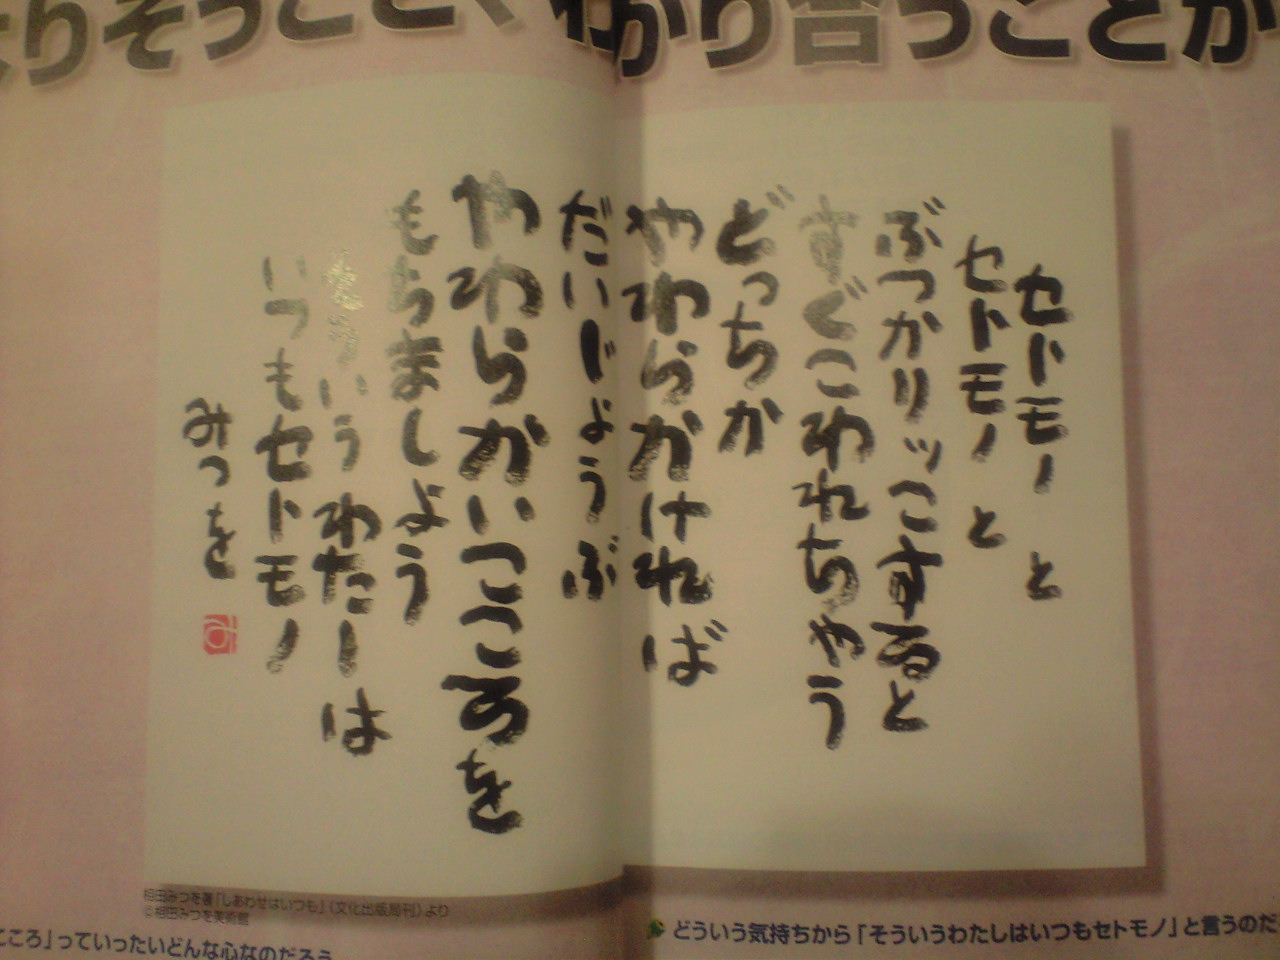 よりそうこと、わかり合うことが
セトモノと
セトモノと
ぶつかりッこすると
すぐこわれちゃう
どっちか
やわらかければ
だいじょうぶ
やわらかいこころを
もちましょう
そういうわたしは
いつもセトモノ
みつを
相田みつを著「しあわせはいつも」（文化出版局刊）より
©相田みつを美術館
こころ」っていったいどんな心なのだろう
どういう気持ちから「そういうわたしはいつもセトモノ」と言うのだ